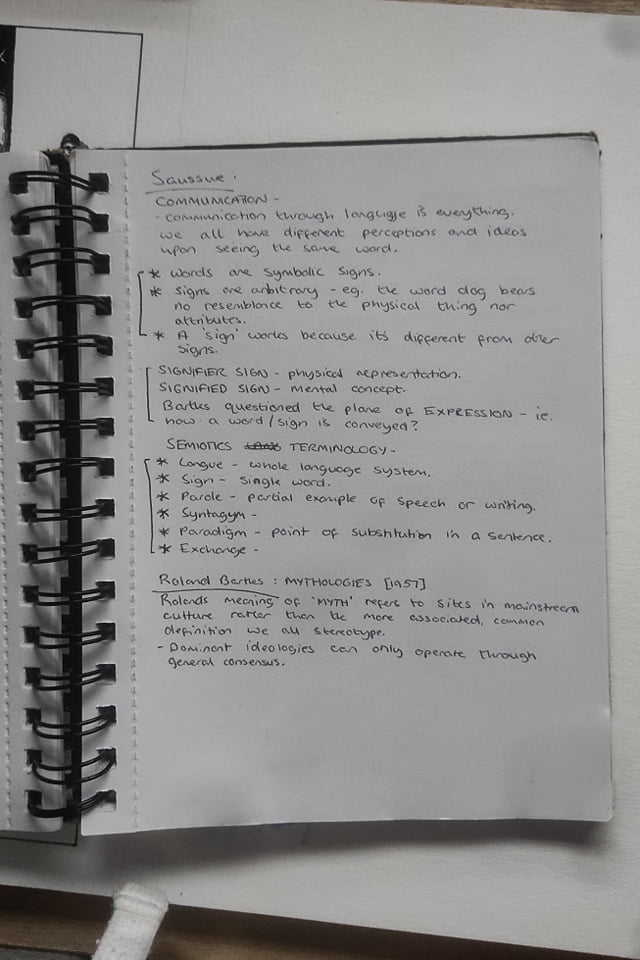 Saussue:
COMMUNICATION -
- communication through language is everything.
we all have different perceptions and ideas
upon seeing the same word.
* words are symbolic signs.
* signs are arbitrary - eg. the word dog bears
no resemblance to the physical thing nor
attributes.
* A 'sign' works because its different from other
signs.
SIGNIFIER SIGN - physical representation.
SIGNIFIED SIGN - mental concept.
Barthes questioned the plane of EXPRESSION - ie.
how a word/sign is conveyed?
SEMIOTICS TERMINOLOGY -
* Langue - whole language system.
* Sign - single word.
* Parole - partial example of speech or writing.
* Syntagym -
* Paradigm - point of substitution in a sentence.
* Exchange -
Roland Barthes : MYTHOLOGIES [1957]
Rolands meaning of 'MYTH' refers to sites in mainstream
culture rather than the more associated, common
definition we all stereotype.
- Dominant ideologies can only operate through
general consensus.